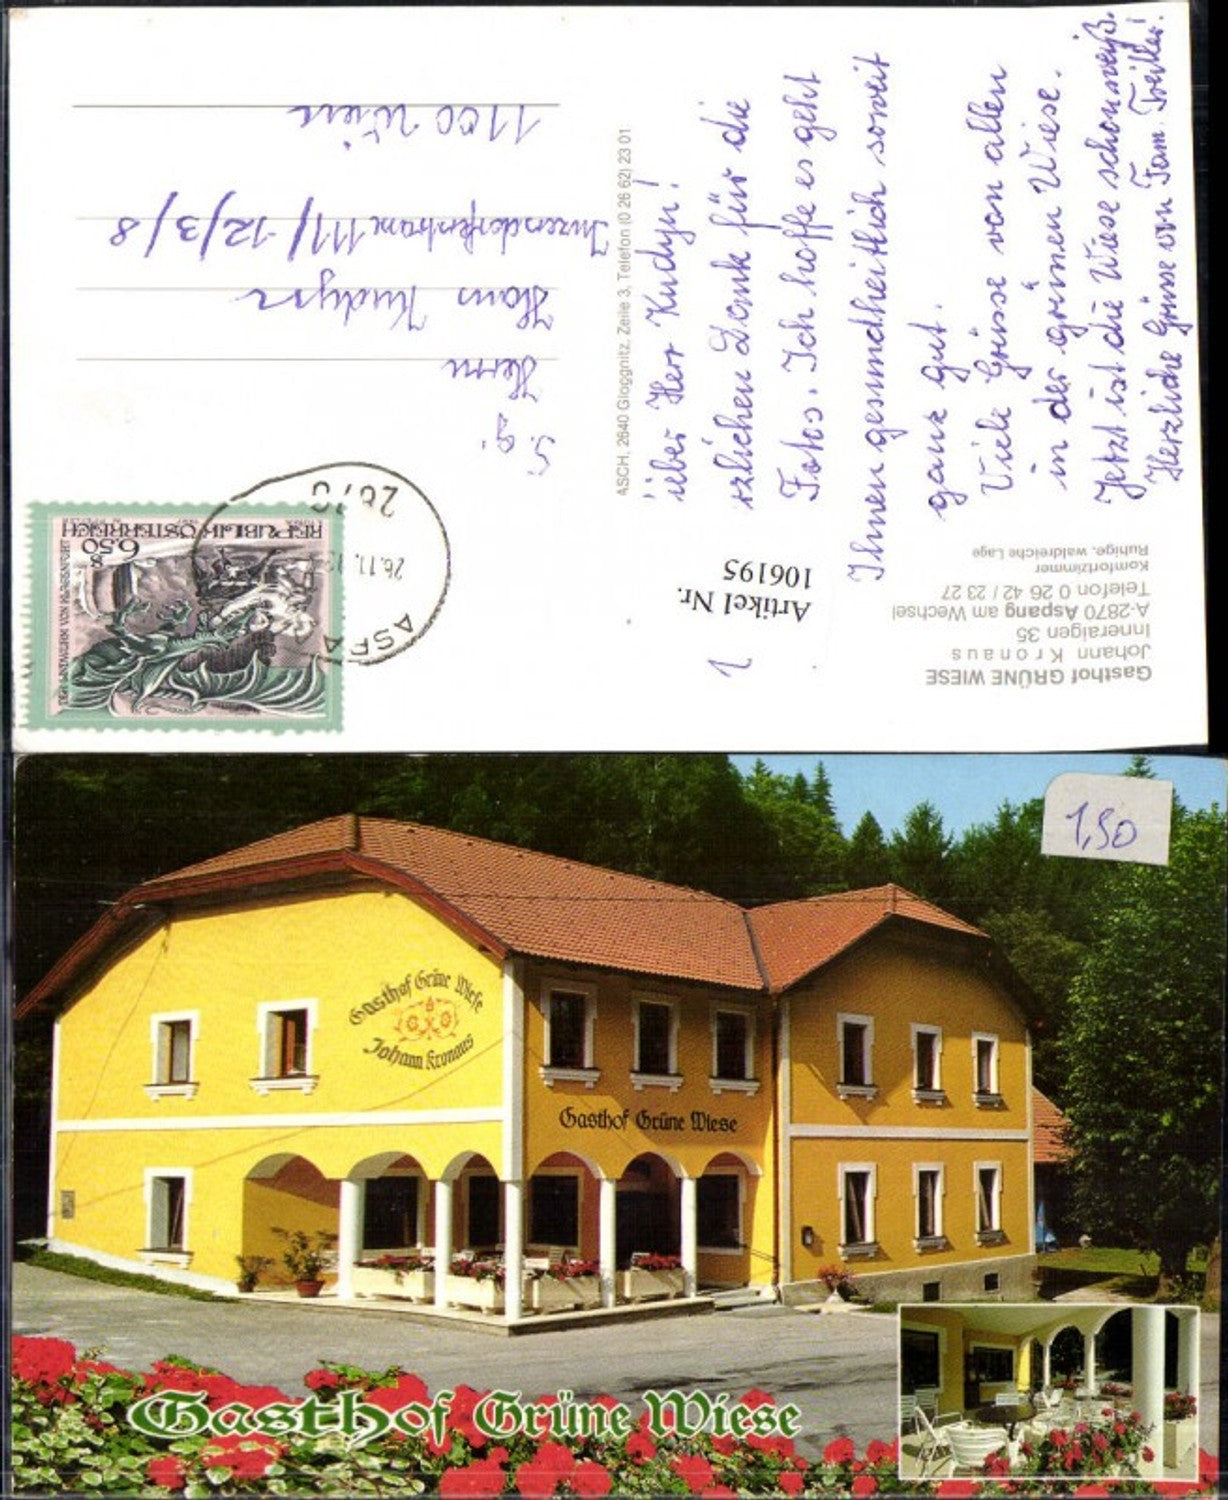 Gasthof GRÜNE WIESE
Johann Kronaus
Inneraigen 35
A-2870 Aspang am Wechsel
Telefon 0 26 42 / 23 27
Komfortzimmer
Ruhige, waldreiche Lage
Artikel Nr.
106195
ieber Herr Kudyn!
rzlichen Dank für die
Fotos. Ich hoffe es geht
Ihnen gesundheitlich soweit
ganz gut.
Viele Grüsse von allen
in der grünen Wiese.
Jetzt ist die Wiese schon weiß.
Herzliche Grüsse von Fam.
ASCH, 2640 Gloggnitz, Zeile 3, Telefon (0 26 62) 23 01
REPUBLIK ÖSTERREICH
6.50 S
DER LINDWURM VON KLAGENFURT
2870
26.11.
ASPA
S.g.
Herrn
Hans Kudyn
Inzersdorferstrasse 111/12/3/8
1100 Wien
1,50
Gasthof Grüne Wiese
Johann Kronaus
Gasthof Grüne Wiese
Gasthof Grüne Wiese